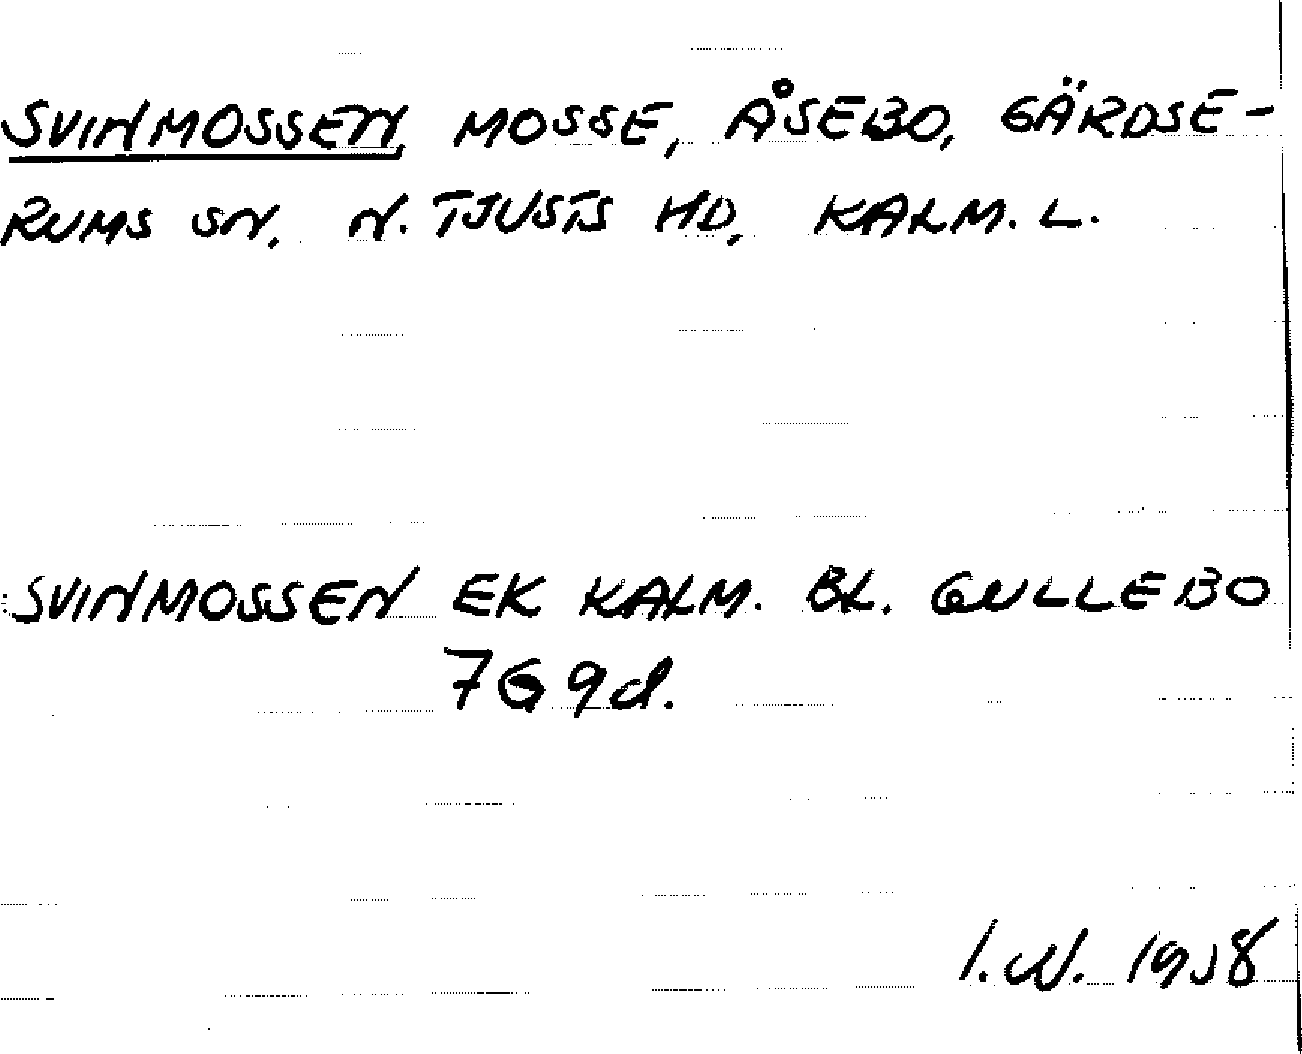 SVINMOSSEN, MOSSE, ÅSEBO, GÄRDSE-
RUMS SN, N. TJUSTS HD, KALM. L.
SVINMOSSEN EK KALM. BL. GULLEBO
7G9d.
I.W. 1958